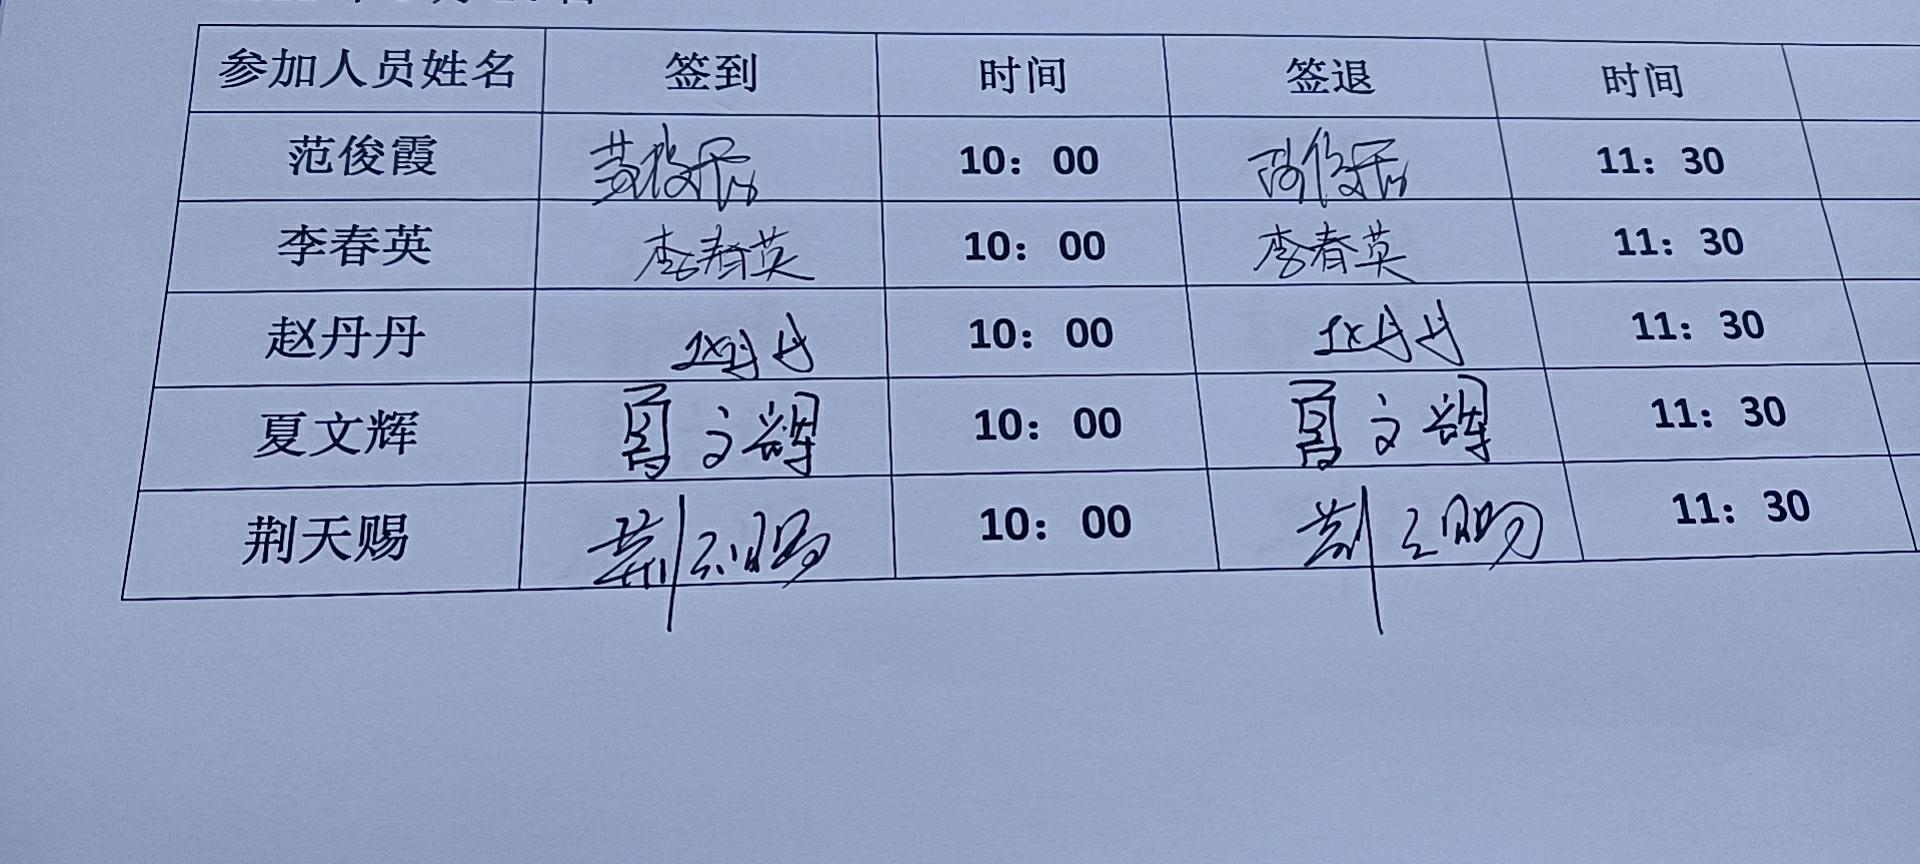 参加人员姓名 签到 时间 签退 时间
范俊霞 范俊霞 10：00 范俊霞 11：30
李春英 李春英 10：00 李春英 11：30
赵丹丹 赵丹丹 10：00 赵丹丹 11：30
夏文辉 夏文辉 10：00 夏文辉 11：30
荆天赐 荆天赐 10：00 荆天赐 11：30